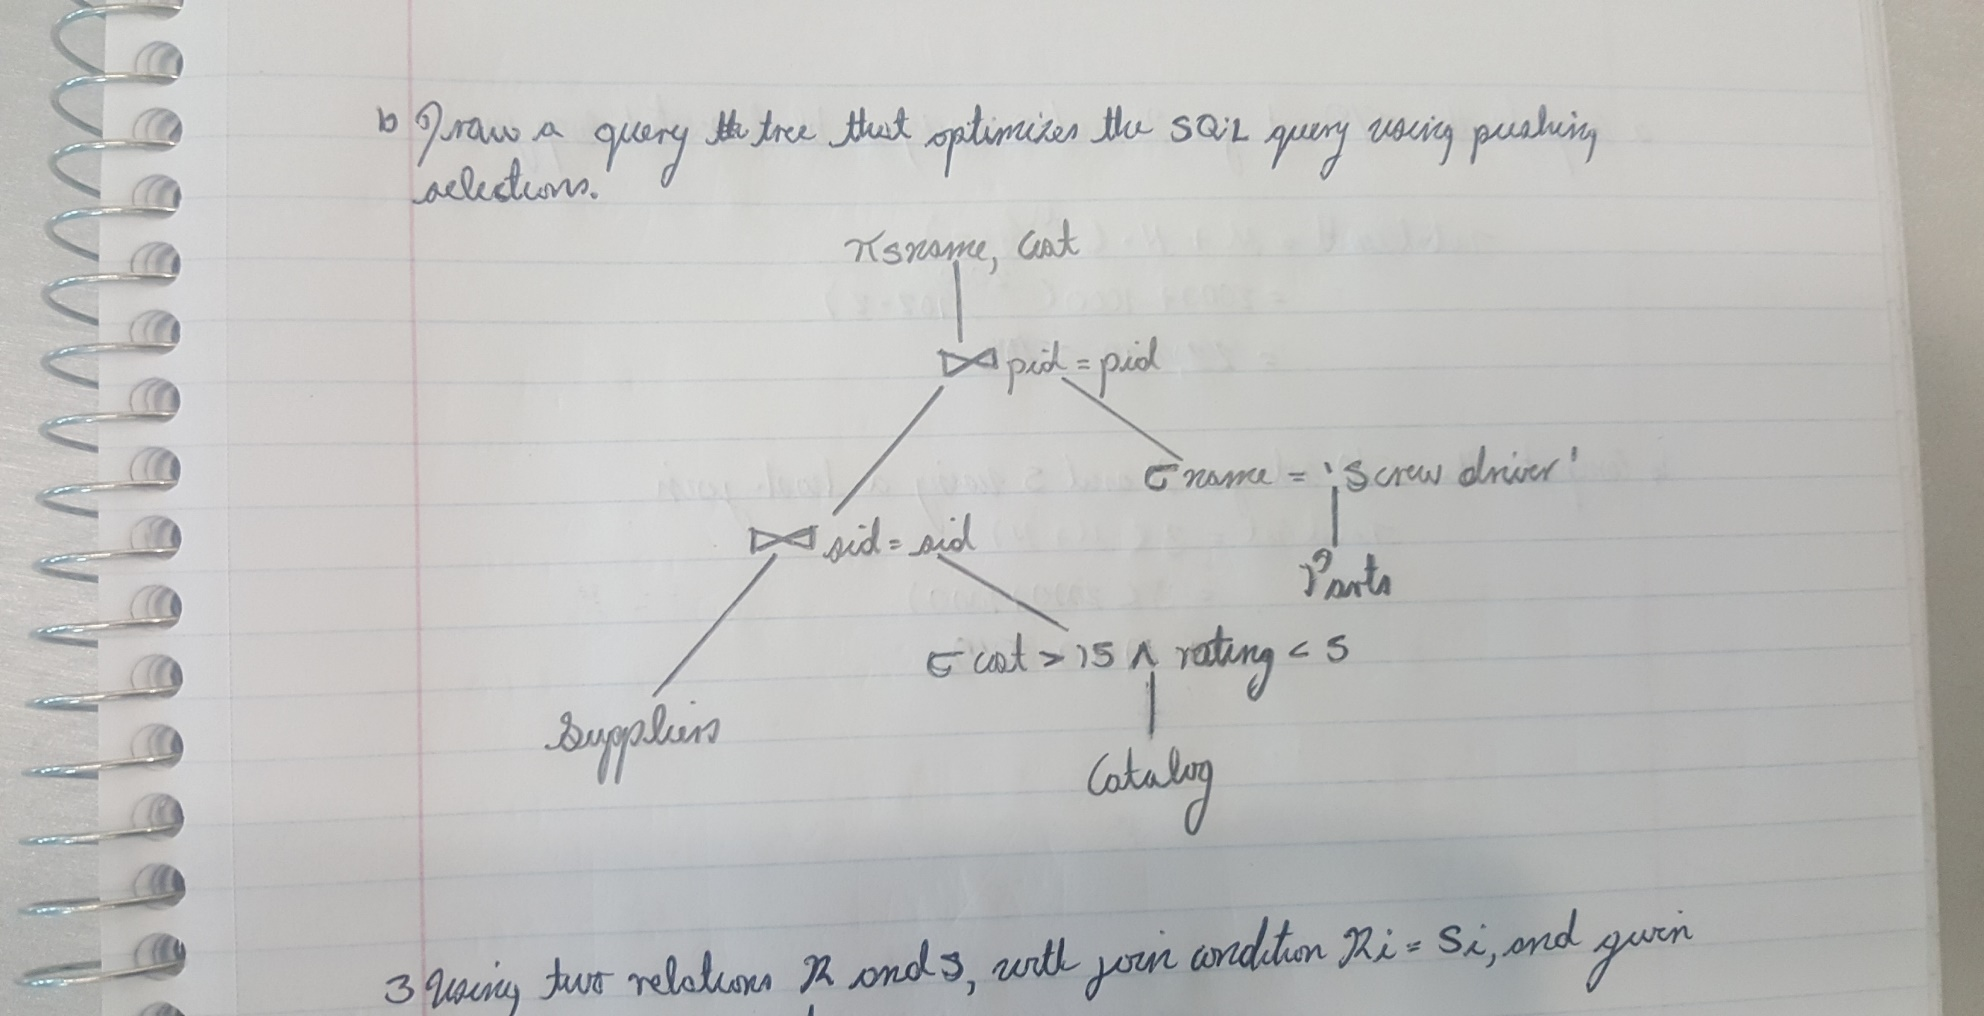 b Draw a query tree that optimizes the SQL query using pushing
selections.
π sname, cost
⋈ pid = pid
σ name = 'Screw driver'
⋈ sid = sid
Parts
σ cost > 15 ∧ rating < 5
Suppliers
Catalog
3 Using two relations R and S, with join condition Ri = Si, and given